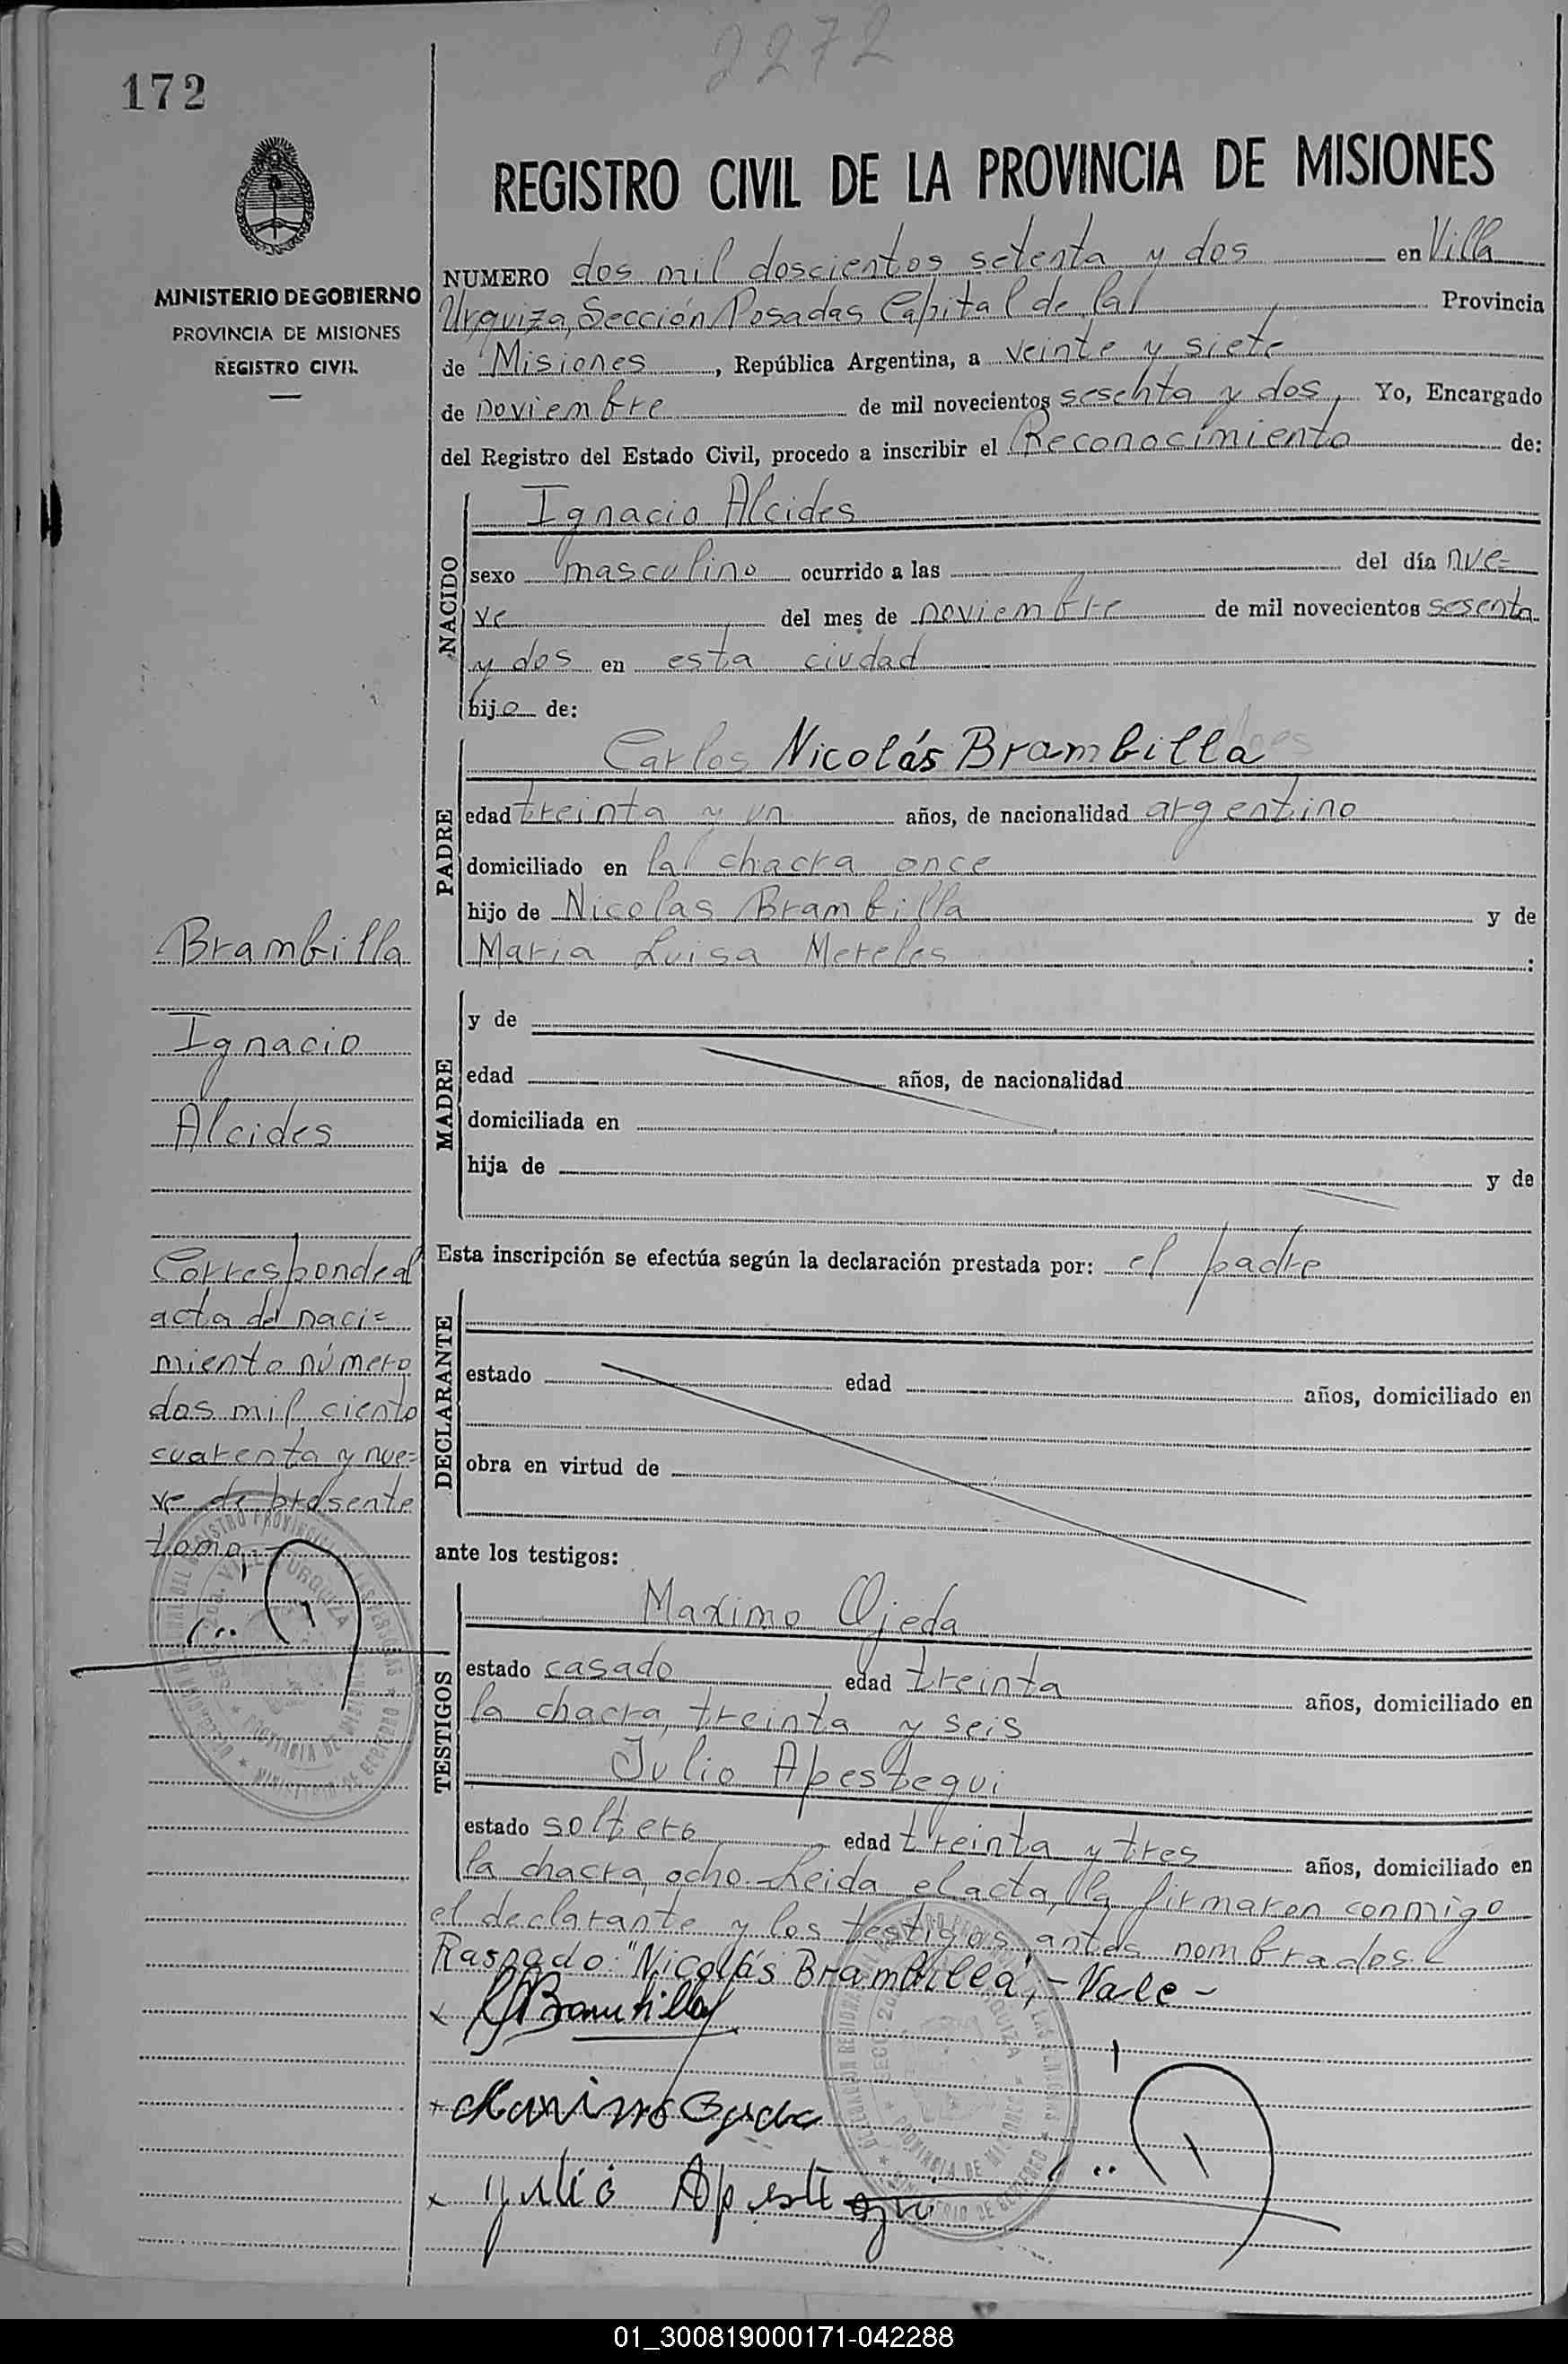 2272
172
REGISTRO CIVIL DE LA PROVINCIA DE MISIONES
MINISTERIO DE GOBIERNO
PROVINCIA DE MISIONES
REGISTRO CIVIL
NUMERO dos mil doscientos setenta y dos en Villa
Urquiza, Sección Posadas Capital de la Provincia
de Misiones, República Argentina, a veinte y siete
de noviembre de mil novecientos sesenta y dos, Yo, Encargado
del Registro del Estado Civil, procedo a inscribir el Reconocimiento de:
NACIDO
Ignacio Alcides
sexo masculino ocurrido a las del día nue=
ve del mes de noviembre de mil novecientos sesenta
y dos en esta ciudad
hijo de:
PADRE
Carlos Nicolás Brambilla
edad treinta y un años, de nacionalidad argentino
domiciliado en la chacra once
hijo de Nicolas Brambilla y de
Maria Luisa Mereles :
Brambilla
Ignacio
Alcides
MADRE
y de
edad años, de nacionalidad
domiciliada en
hija de y de
Esta inscripción se efectúa según la declaración prestada por: el padre
Corresponde al
acta de naci=
miento número
dos mil ciento
cuarenta y nue=
ve de presente
tomo.-
DECLARANTE
estado edad años, domiciliado en
obra en virtud de
ante los testigos:
TESTIGOS
Maximo Ojeda
estado casado edad treinta años, domiciliado en
la chacra, treinta y seis
Julio Apestegui
estado soltero edad treinta y tres años, domiciliado en
la chacra, ocho.- Leida el acta, la firmaron conmigo
el declarante y los testigos antes nombrados.
Raspado: "Nicolás Brambilla",- Vale -
x Brambilla
+ Maximo Ojeda
x Julio Apestegui
01_300819000171-042288